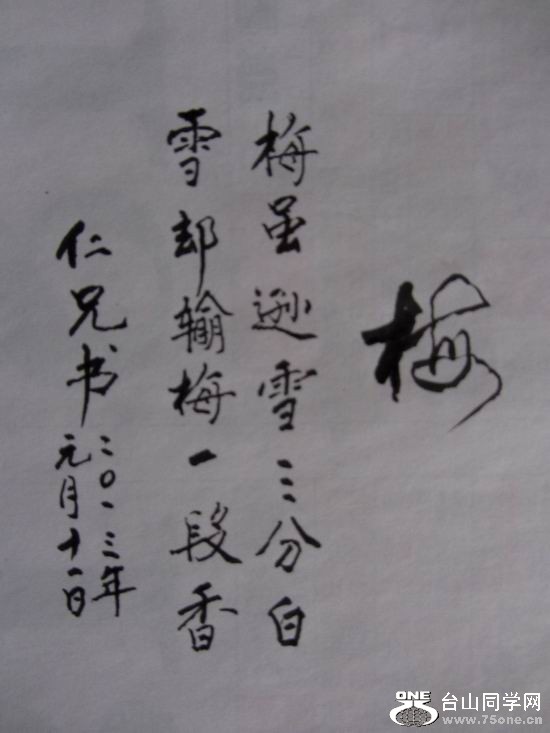 梅
梅虽逊雪三分白
雪却输梅一段香
仁兄书
二〇一三年
元月十一日
ONE 台山同学网
www.75one.cn